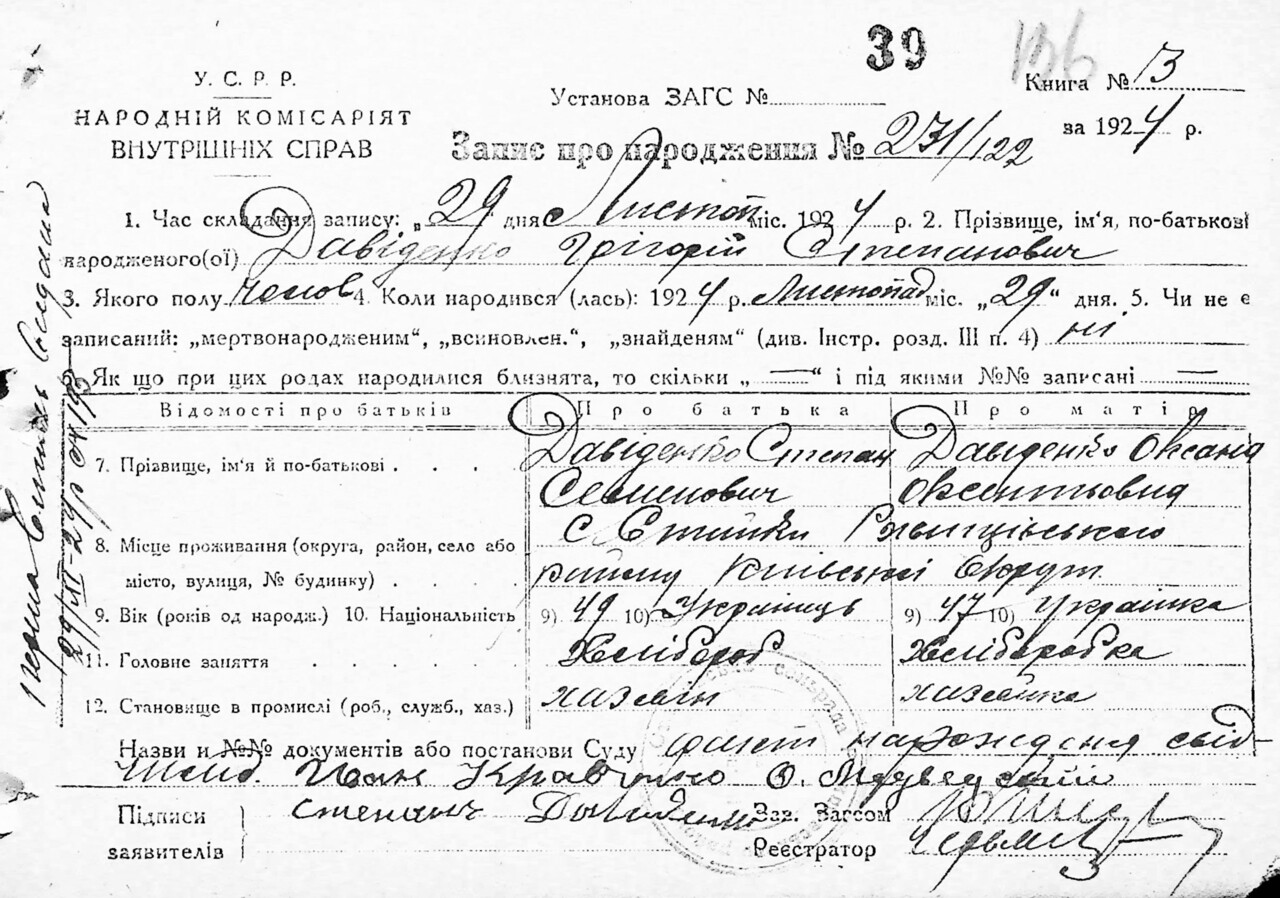 39 136
У. С. Р. Р.
НАРОДНІЙ КОМІСАРІЯТ
ВНУТРІШНІХ СПРАВ
Установа ЗАГС №
Книга № 13
за 1924 р.
Запис про народження № 271/122
1. Час складання запису: „29 дня Листоп міс. 1924 р. 2. Прізвище, ім'я, по-батькові
народженого(ої) Давіденко Грігорій Степанович
3. Якого полу чолов 4. Коли народився (лась): 1924 р. Листопад міс. „29“ дня. 5. Чи не є
записаний: „мертвонародженим“, „всиновлен.“, „знайденям“ (див. Інстр. розд. III п. 4) ні
6. Як що при цих родах народилися близнята, то скільки „—“ і під якими №№ записані —
Відомості про батьків Про батька Про матір
7. Прізвище, ім'я й по-батькові . . . . Давіденко Степан Давіденко Оксана
Семенович Оксентьовна
8. Місце проживання (округа, район, село або с. Єтинки
місто, вулиця, № будинку) . . . . району Киівської Округи
9. Вік (років од народж.) 10. Національність 9) 49 10) Украінець 9) 47 10) Украінка
11. Головне заняття . . . . . Хлібороб Хліборобка
12. Становище в промислі (роб., служб., хаз.) хазяин хазяйка
Назви и №№ документів або постанови Суду факт народженя свід-
Іван Кравченко О. Медведский
Підписи Степан Зав. Загсом
заявителів Реєстратор
29/XI-24р